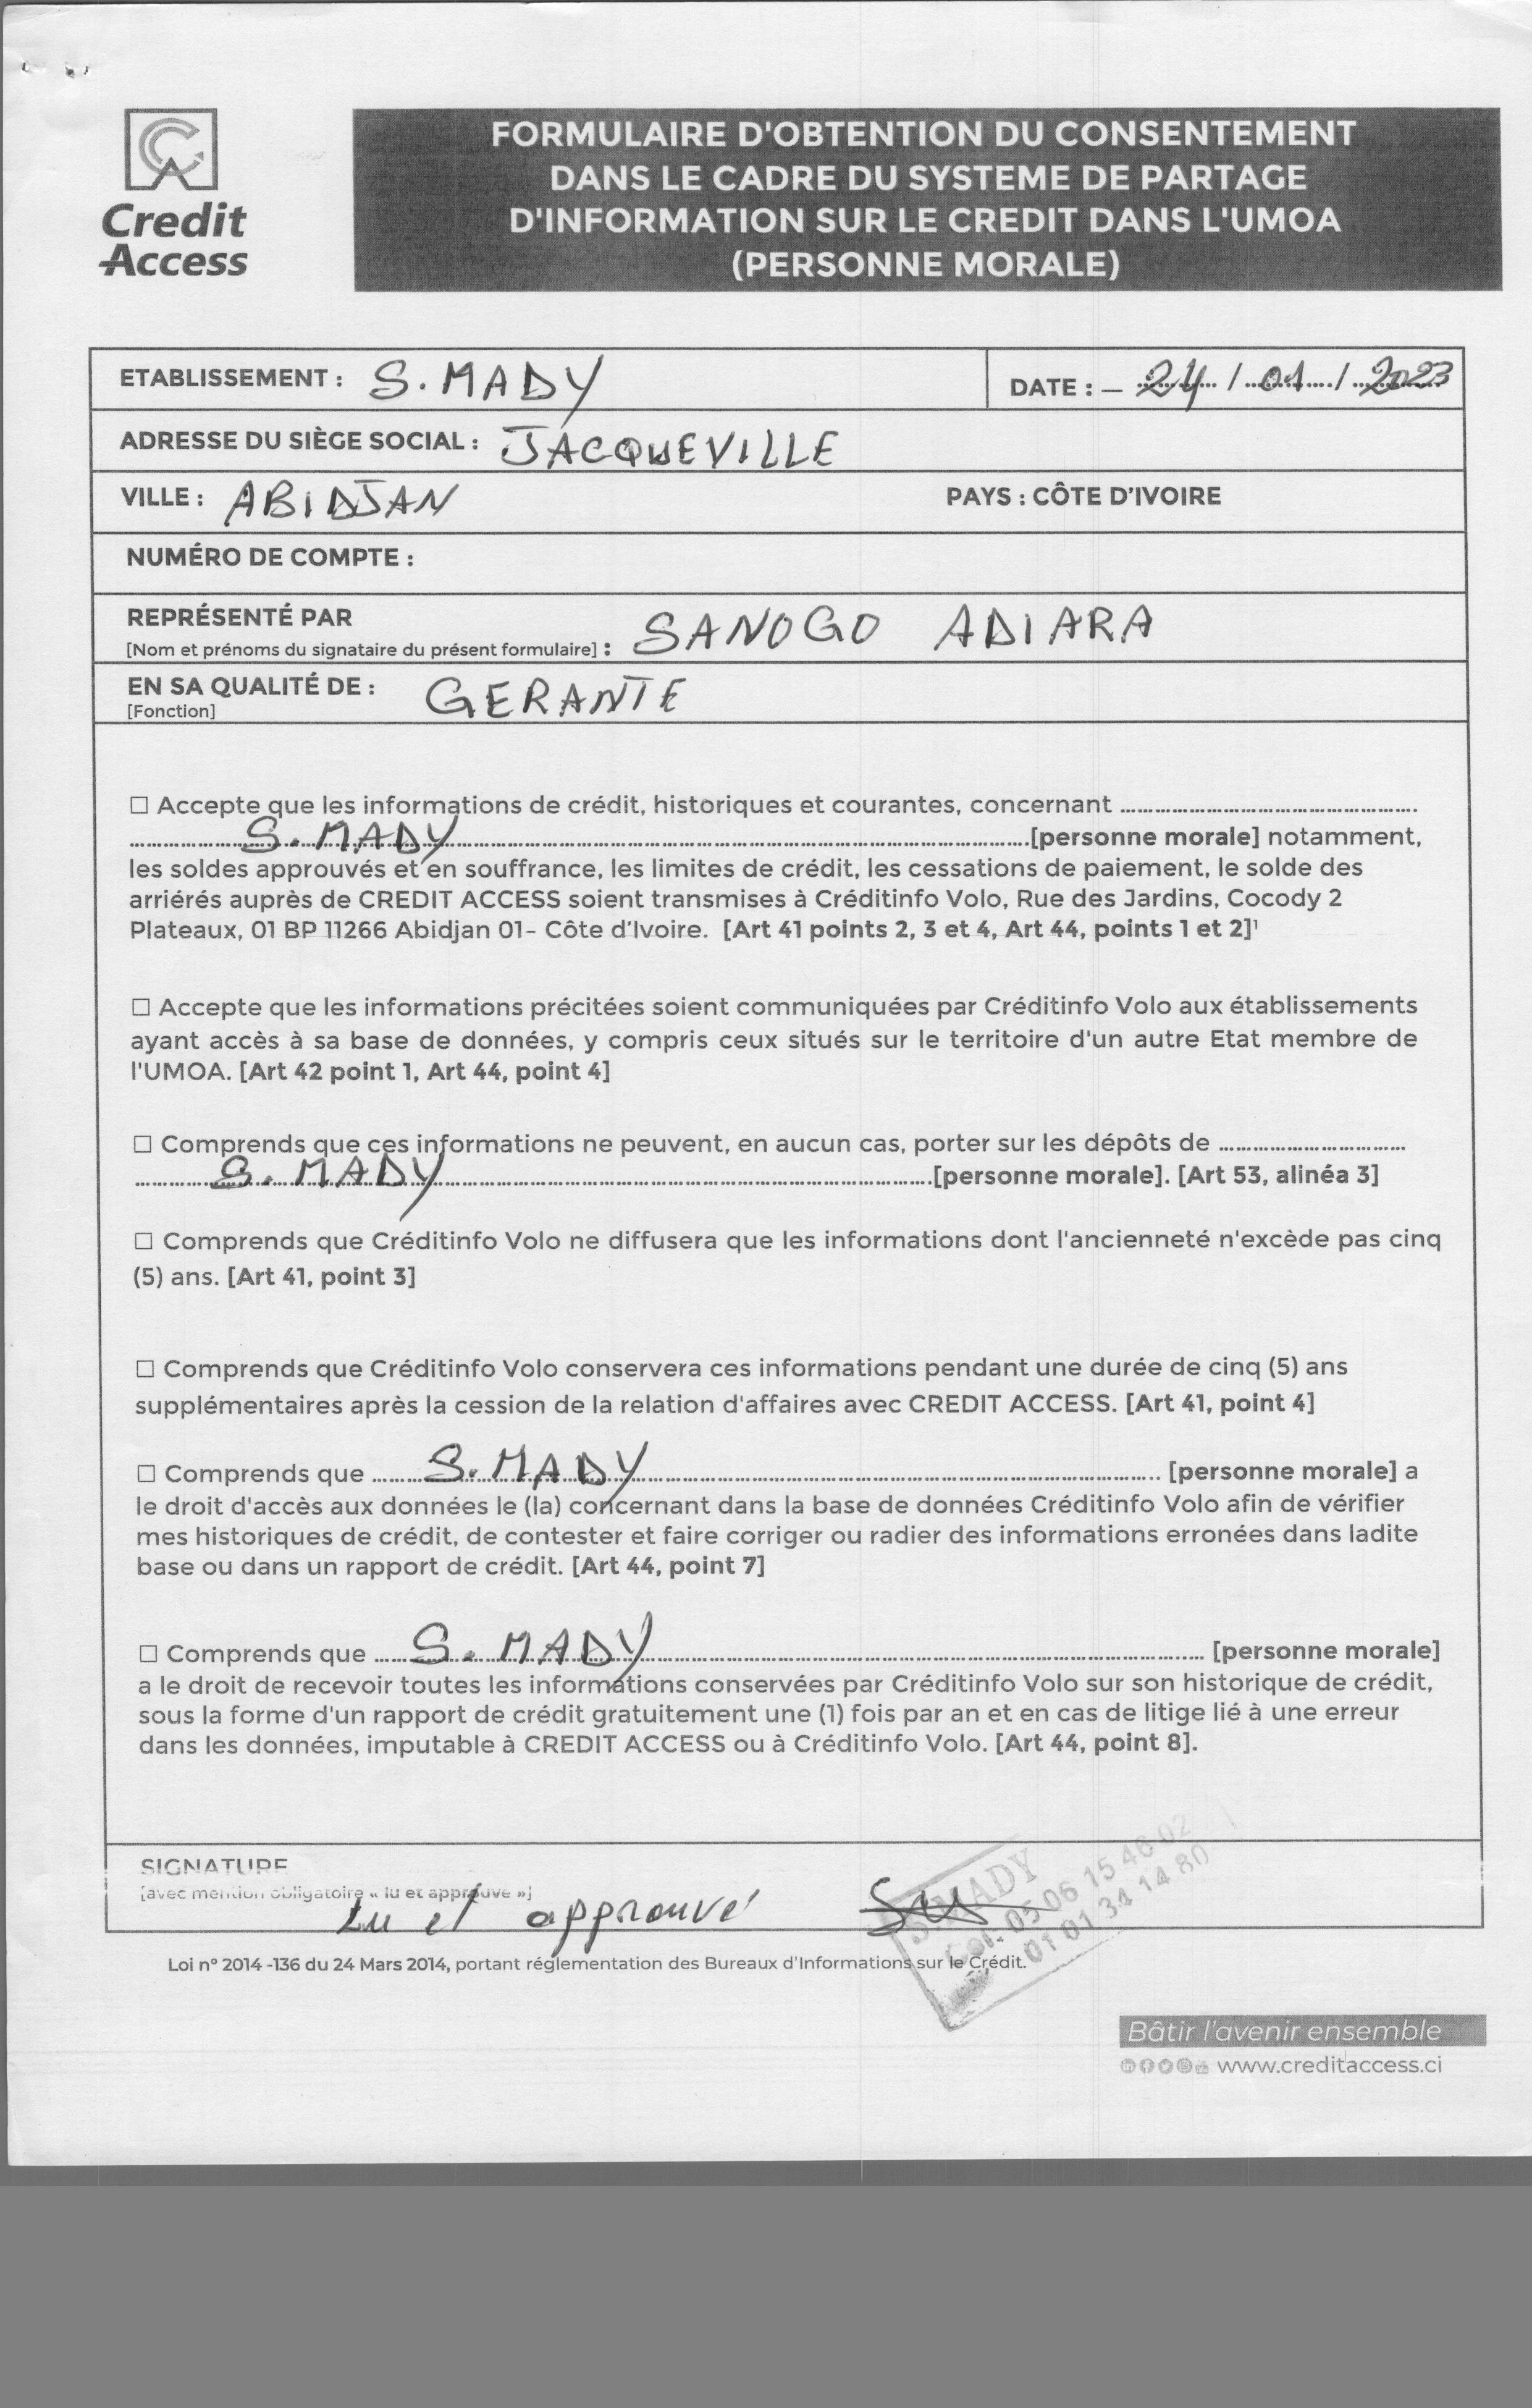 Credit
Access
FORMULAIRE D'OBTENTION DU CONSENTEMENT
DANS LE CADRE DU SYSTEME DE PARTAGE
D'INFORMATION SUR LE CREDIT DANS L'UMOA
(PERSONNE MORALE)
ETABLISSEMENT : S. MADY DATE : – 24 / 01 / 2023
ADRESSE DU SIÈGE SOCIAL : JACQUEVILLE
VILLE : ABIDJAN PAYS : CÔTE D'IVOIRE
NUMÉRO DE COMPTE :
REPRÉSENTÉ PAR
[Nom et prénoms du signataire du présent formulaire] : SANOGO ADIARA
EN SA QUALITÉ DE : GERANTE
[Fonction]
☐ Accepte que les informations de crédit, historiques et courantes, concernant ........
S. MADY [personne morale] notamment,
les soldes approuvés et en souffrance, les limites de crédit, les cessations de paiement, le solde des
arriérés auprès de CREDIT ACCESS soient transmises à Créditinfo Volo, Rue des Jardins, Cocody 2
Plateaux, 01 BP 11266 Abidjan 01- Côte d'Ivoire. [Art 41 points 2, 3 et 4, Art 44, points 1 et 2]¹
☐ Accepte que les informations précitées soient communiquées par Créditinfo Volo aux établissements
ayant accès à sa base de données, y compris ceux situés sur le territoire d'un autre Etat membre de
l'UMOA. [Art 42 point 1, Art 44, point 4]
☐ Comprends que ces informations ne peuvent, en aucun cas, porter sur les dépôts de ........
S. MADY [personne morale]. [Art 53, alinéa 3]
☐ Comprends que Créditinfo Volo ne diffusera que les informations dont l'ancienneté n'excède pas cinq
(5) ans. [Art 41, point 3]
☐ Comprends que Créditinfo Volo conservera ces informations pendant une durée de cinq (5) ans
supplémentaires après la cession de la relation d'affaires avec CREDIT ACCESS. [Art 41, point 4]
☐ Comprends que S. MADY [personne morale] a
le droit d'accès aux données le (la) concernant dans la base de données Créditinfo Volo afin de vérifier
mes historiques de crédit, de contester et faire corriger ou radier des informations erronées dans ladite
base ou dans un rapport de crédit. [Art 44, point 7]
☐ Comprends que S. MADY [personne morale]
a le droit de recevoir toutes les informations conservées par Créditinfo Volo sur son historique de crédit,
sous la forme d'un rapport de crédit gratuitement une (1) fois par an et en cas de litige lié à une erreur
dans les données, imputable à CREDIT ACCESS ou à Créditinfo Volo. [Art 44, point 8].
SIGNATURE
[avec mention obligatoire « lu et approuve »]
Lu et approuvé
S.MADY
Cel: 05 06 15 46 02
01 01 34 14 80
Loi n° 2014 -136 du 24 Mars 2014, portant réglementation des Bureaux d'Informations sur le Crédit.
Bâtir l'avenir ensemble
www.creditaccess.ci